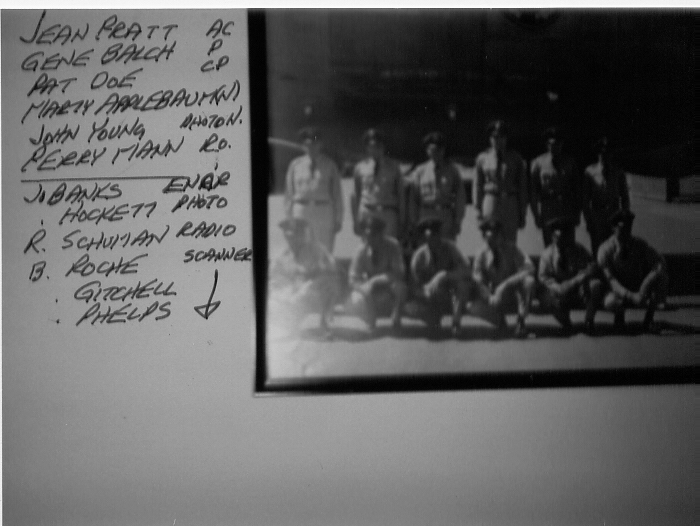 JEAN PRATT AC
GENE BALCH P
PAT DOE CP
MARTY APPLEBAUM (N)
JOHN YOUNG PHOTO N.
PERRY MANN R.O.
J. BANKS ENGR
. HOCKETT PHOTO
R. SCHUMAN RADIO
B. ROCHE SCANNER
. GITCHELL
. PHELPS